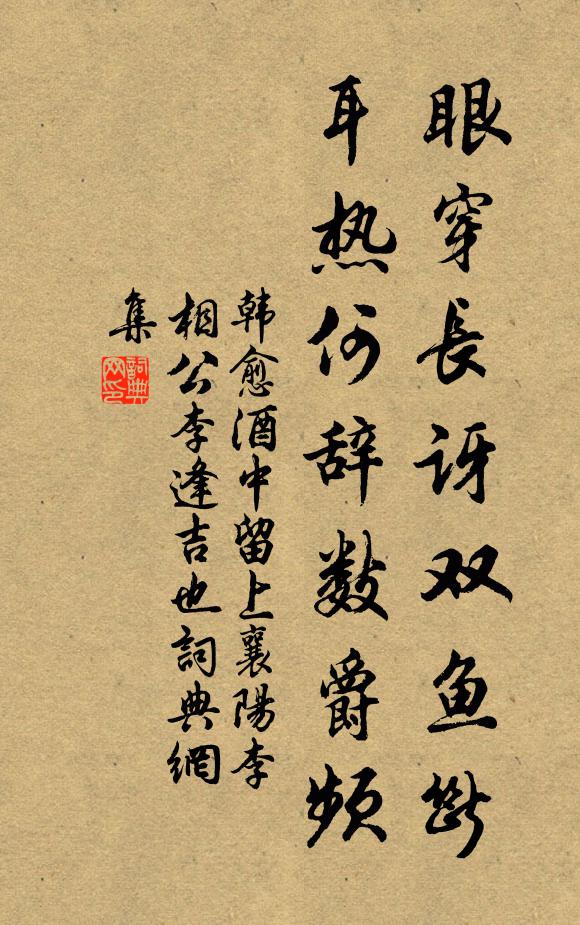 眼穿長讶双鱼断
耳热何辞数爵频
韩愈酒中留上襄陽李
相公李逢吉也詞典網
集
詞典
网印